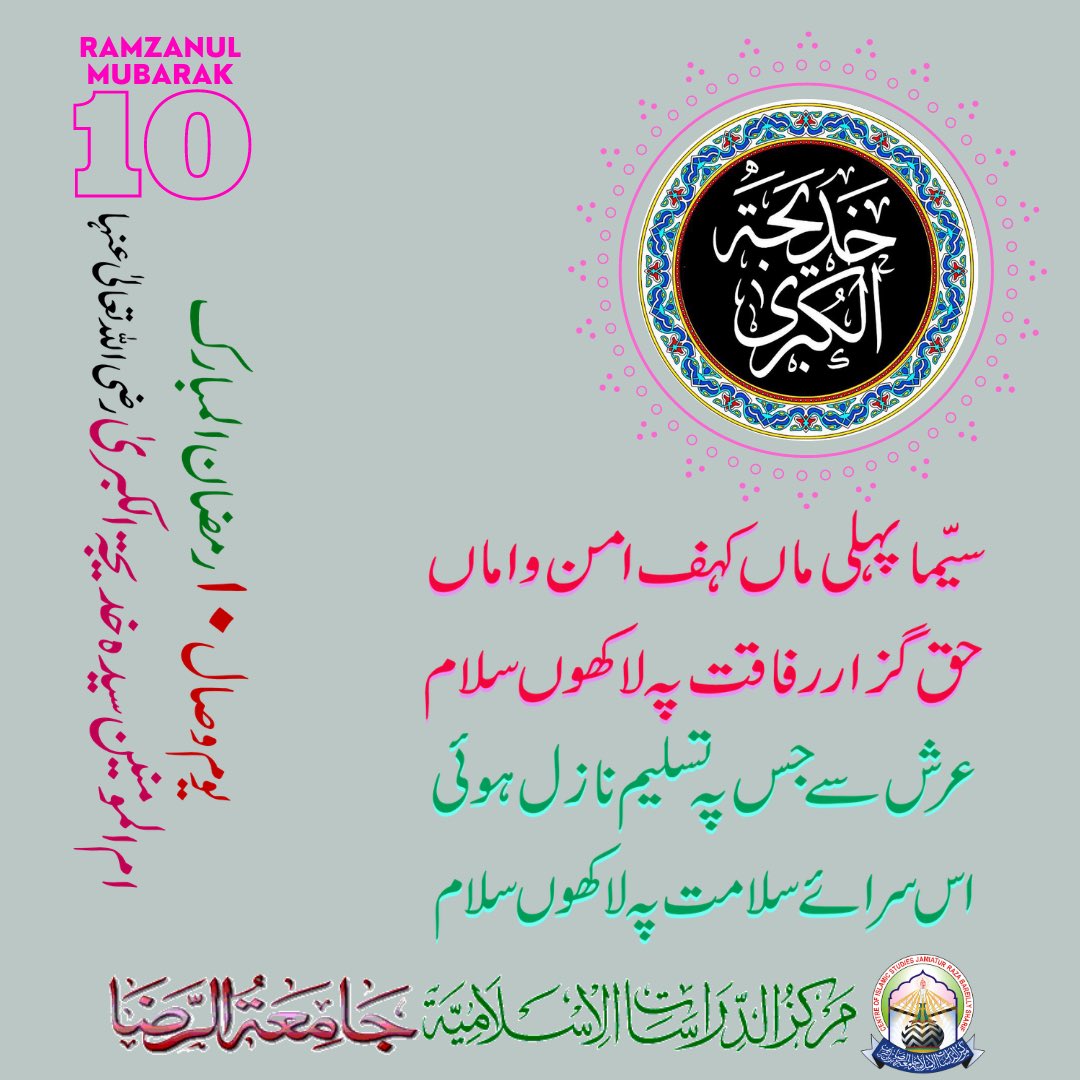 RAMZANUL
MUBARAK
10
خَدِيجَةُ
الْكُبْرَىٰ
یوم وصال ۱۰ رمضان المبارک
ام المومنین سیدہ خدیجۃ الکبریٰ رضی اللہ تعالیٰ عنہا
سیّما پہلی ماں کہف امن و اماں
حق گزار رفاقت پہ لاکھوں سلام
عرش سے جس پہ تسلیم نازل ہوئی
اس سرائے سلامت پہ لاکھوں سلام
مَرکزُ الدِّرَاسَاتِ الاِسْلَامِیَّة جَامِعَةُ الرَّضَا
CENTRE OF ISLAMIC STUDIES JAMIATUR RAZA BAREILLY SHARIF